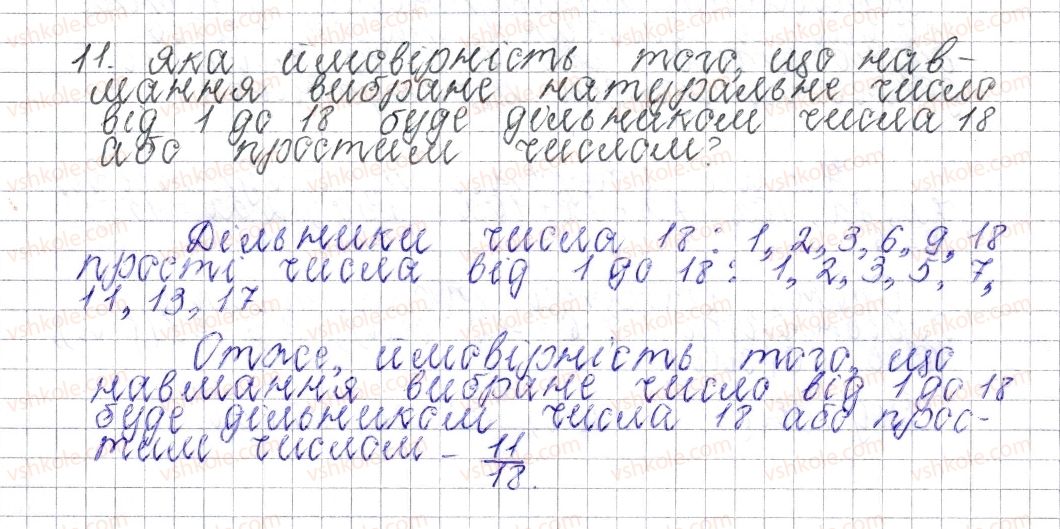 11. Яка ймовірність того, що нав-
мання вибране натуральне число
від 1 до 18 буде дільником числа 18
або простим числом?
Дільники числа 18: 1, 2, 3, 6, 9, 18
прості числа від 1 до 18: 1, 2, 3, 5, 7,
11, 13, 17.
Отже, ймовірність того, що
навмання вибране число від 1 до 18
буде дільником числа 18 або прос-
тим числом – 11/18.